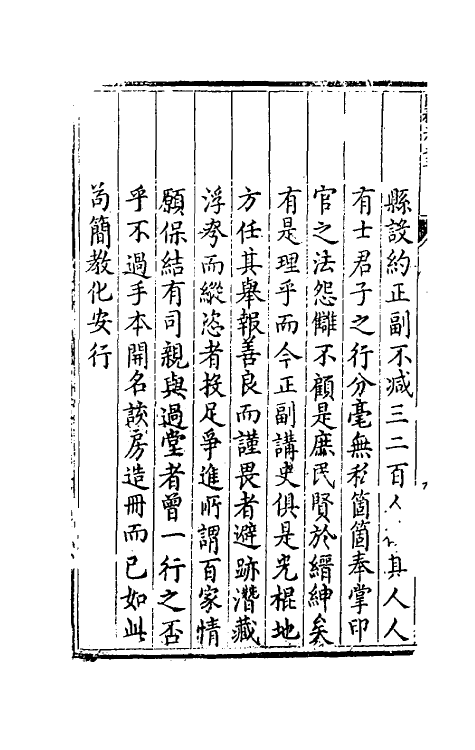 縣設約正副不减三二百人其人人
有士君子之行分毫無私箇箇奉掌印
官之法怨讎不顧是庶民賢於縉紳矣
有是理乎而今正副講史俱是光棍地
方任其舉報善良而謹畏者避跡潛藏
浮夸而縱恣者投足爭進所謂百家情
願保結有司親與過堂者曾一行之否
乎不過手本開名該房造冊而已如此
苟簡教化安行